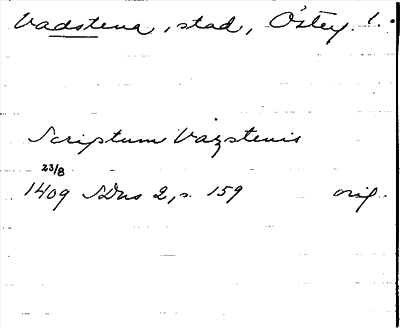 Vadstena, stad,Österg. l.
Scriptum Vazstenis
23/8
1409 SDns 2, s. 159 orig.